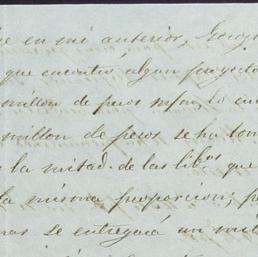 e en mi anterior,
que encontró, algun proyecto
millon de pesos
millon de pesos se ha
la mitad de las lib.s que
la misma proporcion; p
se entregará un mill